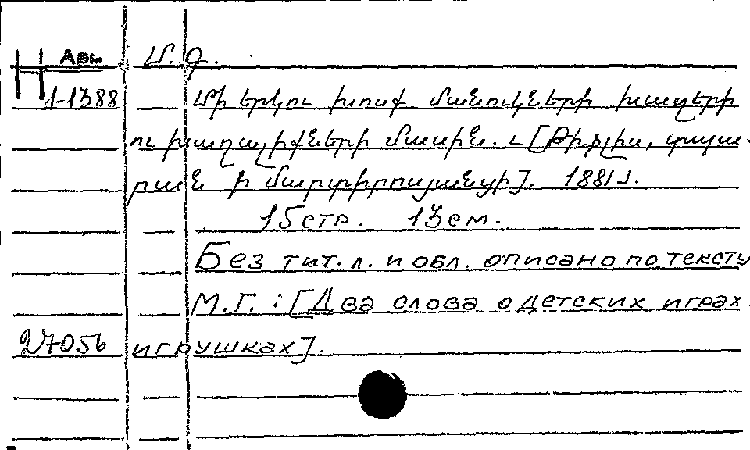 Н Арм Մ. Գ.
1-1388 Մի երկու խօսք մանուկների խաղերի
ու խաղալիքների մասին. ֊ [Թիֆլիս, տպա-
րան Ի Մարտիրոսյանցի]. 1881.
15 стр. 13 см.
Без тит. л. и обл. описано по тексту
М. Г. : [Два слова о детских играх
27056 игрушках].